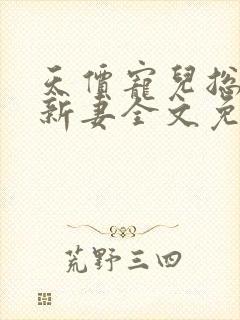 天價寵兒總
新妻全文免
荒野三四